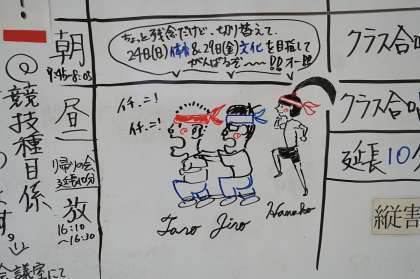 朝
8:45~8:05
昼
帰りの会
延長10分
放
16:10
~16:30
@競技種目係
会議室にて
ちょっと残念だけど、切り替えて、
24日(日)体育&29日(金)文化を目指して
がんばるぞ~~!!オー!!
イチ、ニ!
イチ、ニ!
Taro Jiro Hanako
クラス合
クラス合
延長10
縦割